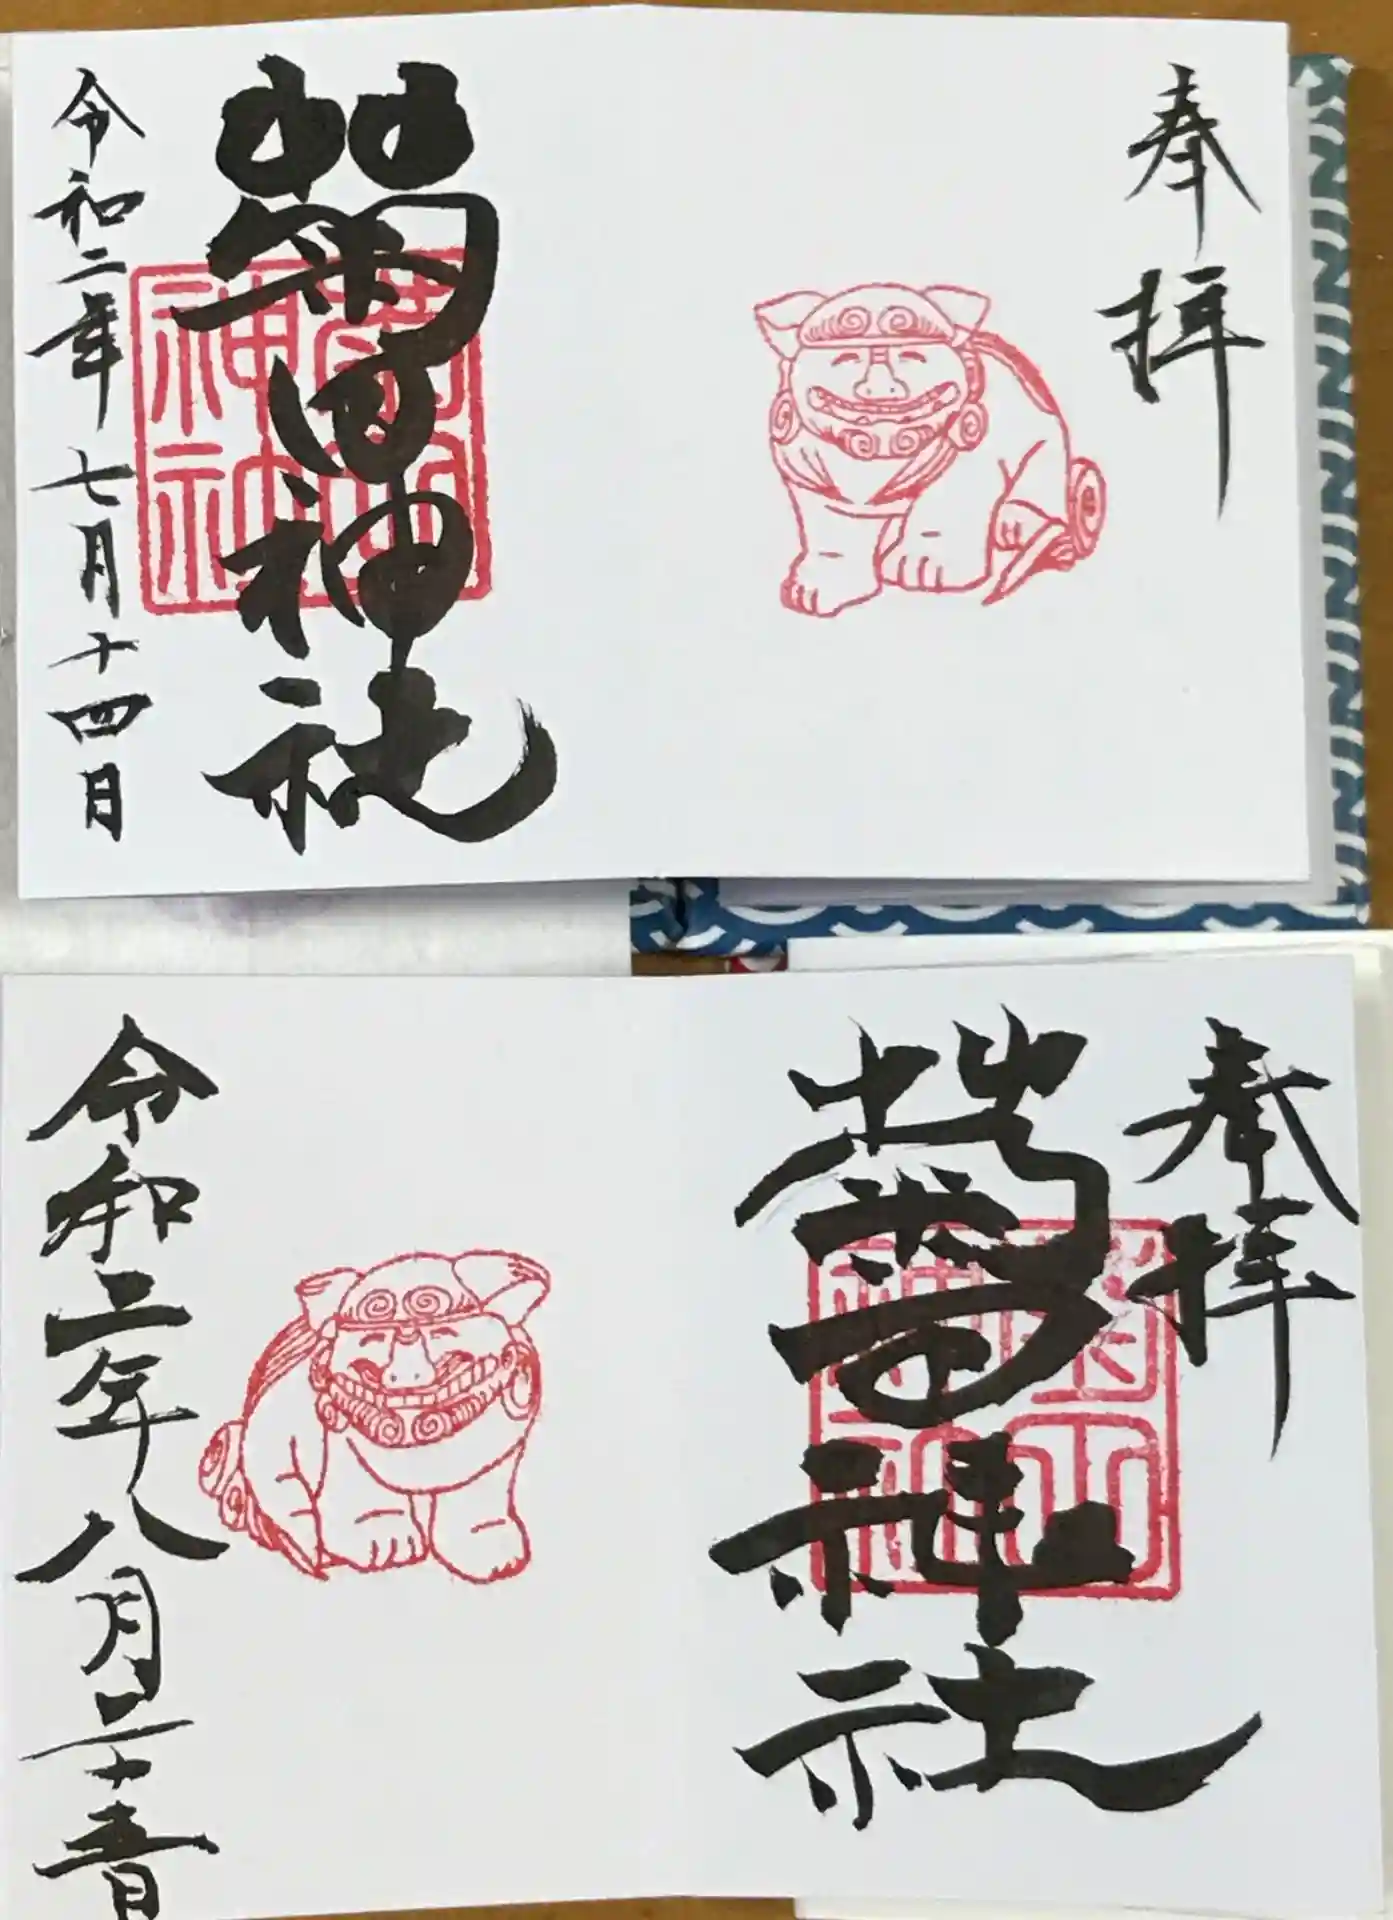 奉拝
菊田神社
菊田神社
令和二年七月十四日
奉拝
菊田神社
菊田神社
令和二年八月二十